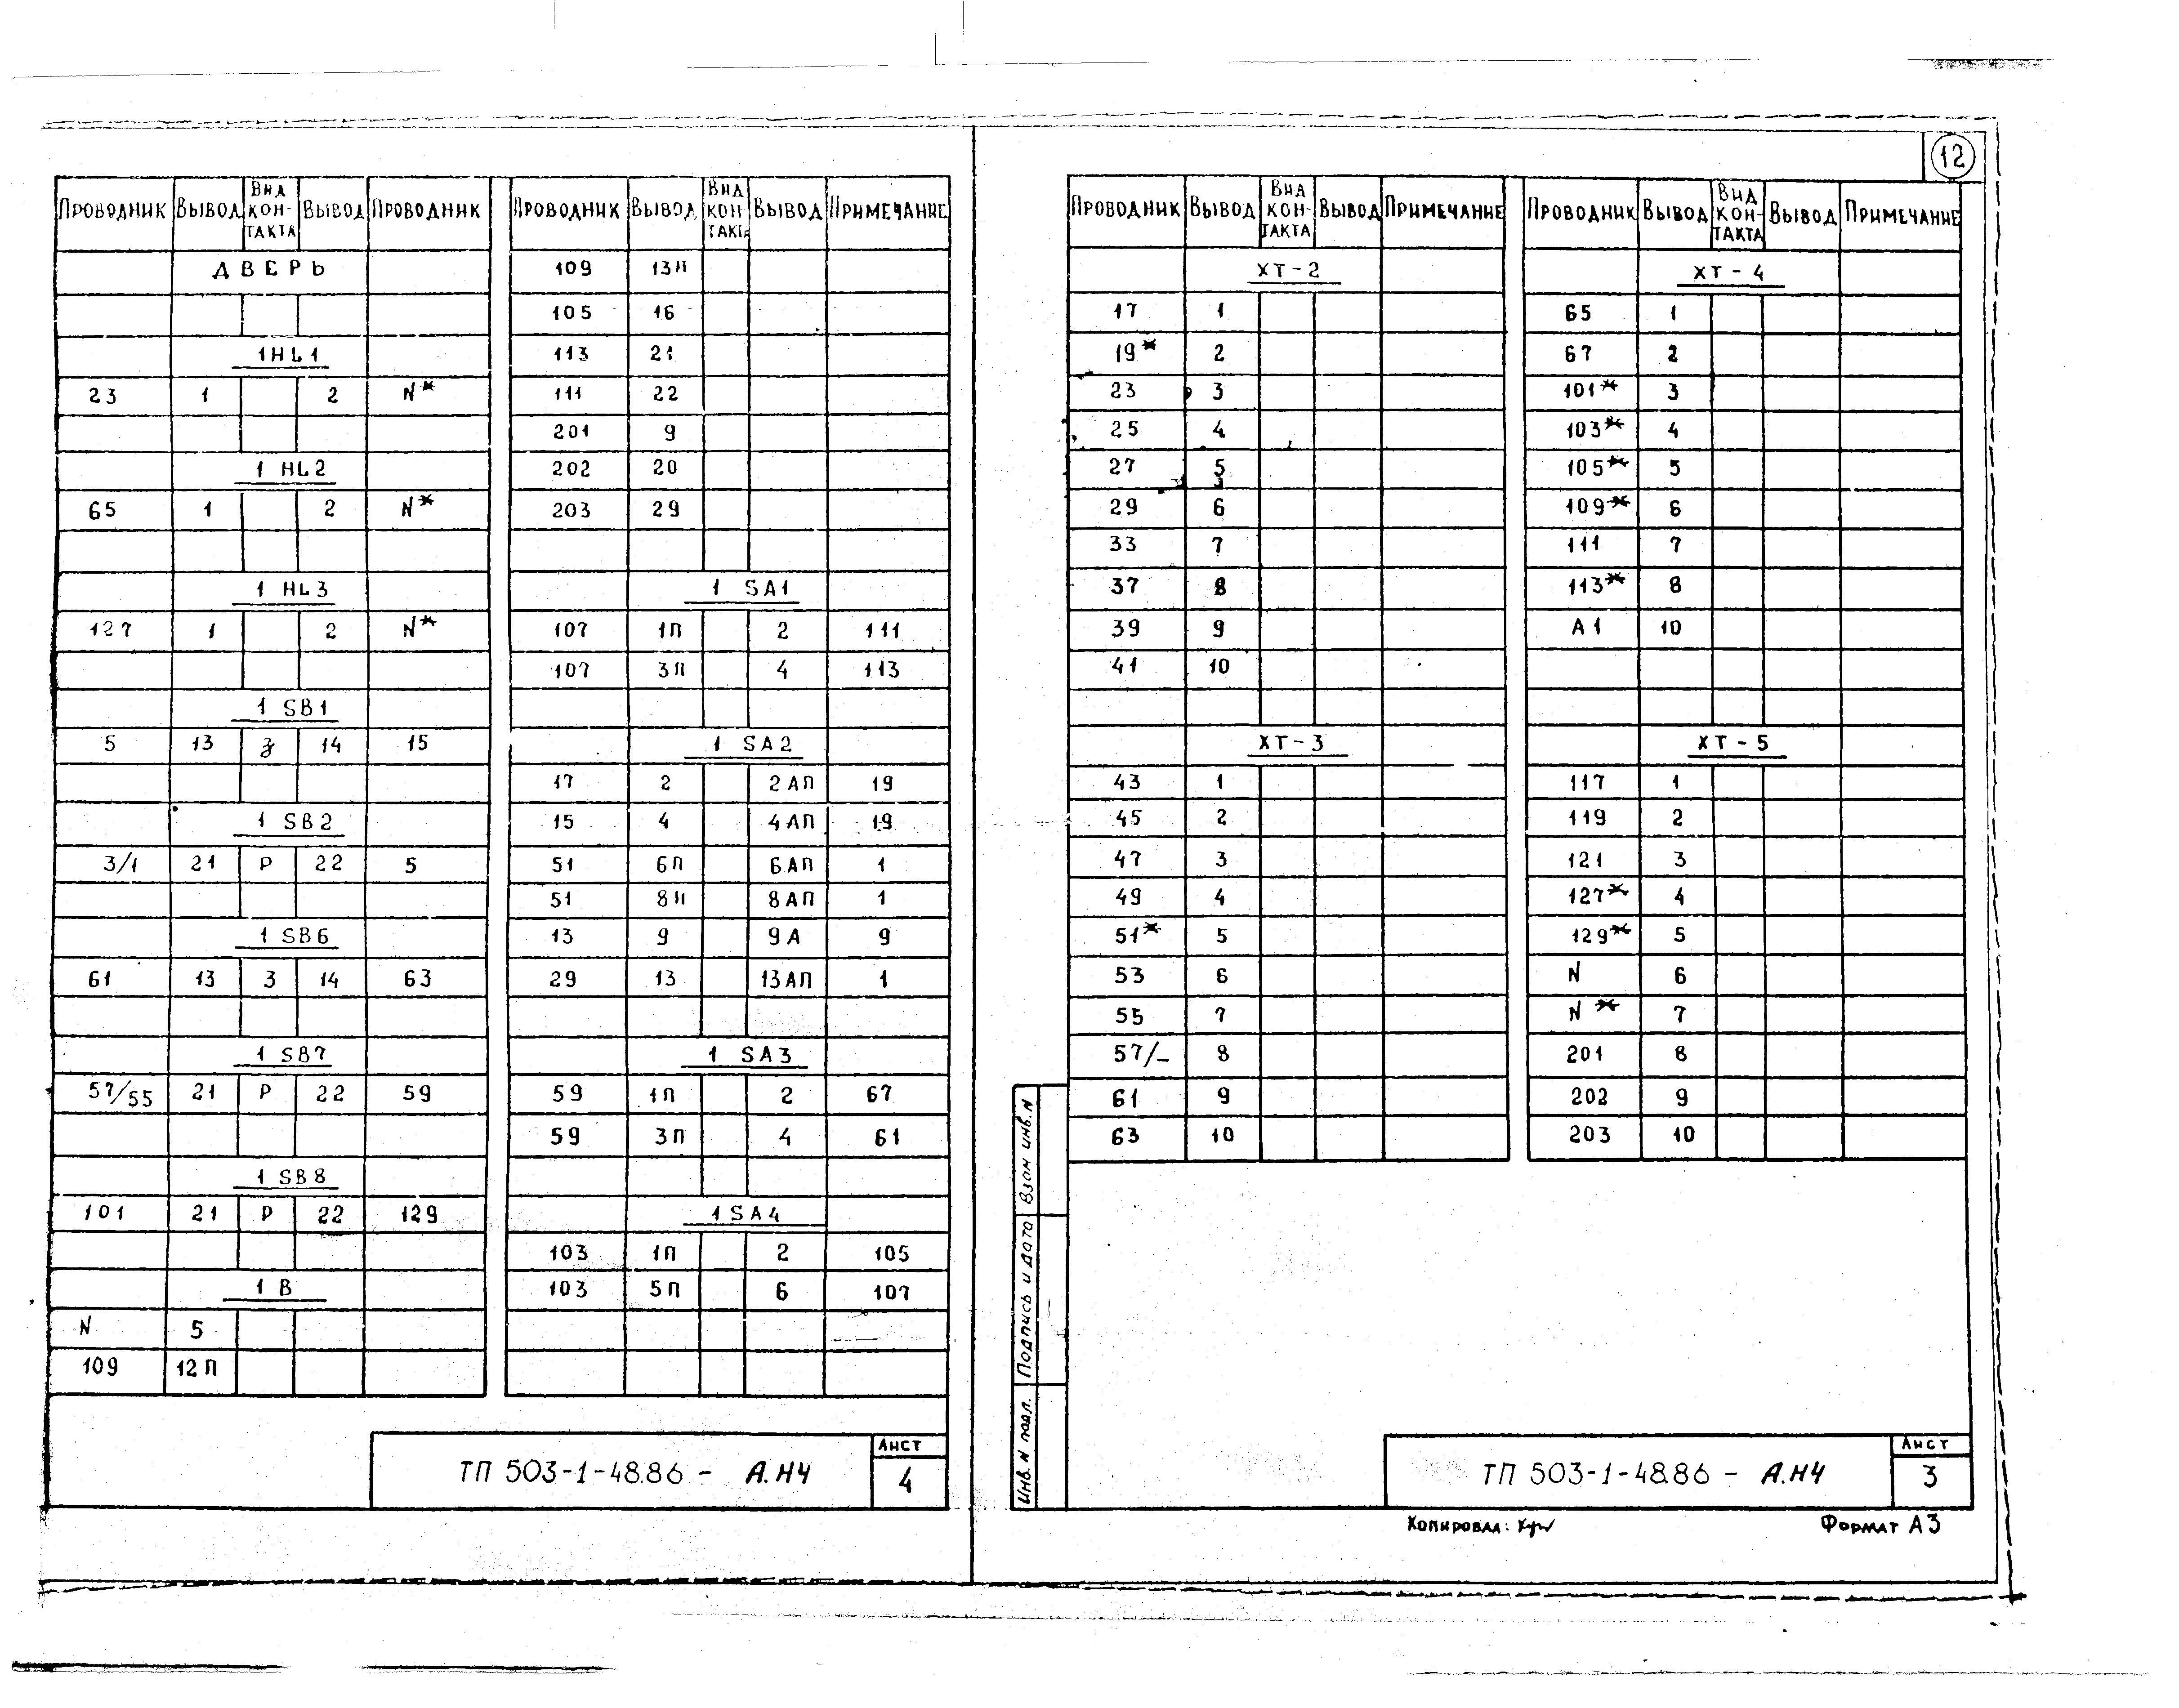 12
Проводник Вывод Вид контакта Вывод Проводник
ДВЕРЬ
1HL1
23 1 2 N*
1 HL2
65 1 2 N*
1 HL3
127 1 2 N*
1 SB1
5 13 З 14 15
1 SB2
3/1 21 Р 22 5
1 SB6
61 13 З 14 63
1 SB7
57/55 21 Р 22 59
1 SB8
101 21 Р 22 129
1 В
N 5
109 12П
Проводник Вывод Вид контакта Вывод Примечание
109 13П
105 16
113 21
111 22
201 9
202 20
203 29
1 SA1
107 1П 2 111
107 3П 4 113
1 SA2
17 2 2АП 19
15 4 4АП 19
51 6П 6АП 1
51 8П 8АП 1
13 9 9А 9
29 13 13АП 1
1 SA3
59 1П 2 67
59 3П 4 61
1 SA4
103 1П 2 105
103 5П 6 107
ТП 503-1-48.86 - А.Н4
Лист
4
Проводник Вывод Вид контакта Вывод Примечание
ХТ-2
17 1
19* 2
23 3
25 4
27 5
29 6
33 7
37 8
39 9
41 10
ХТ-3
43 1
45 2
47 3
49 4
51* 5
53 6
55 7
57/- 8
61 9
63 10
Проводник Вывод Вид контакта Вывод Примечание
ХТ-4
65 1
67 2
101* 3
103* 4
105* 5
109* 6
111 7
113* 8
А1 10
ХТ-5
117 1
119 2
121 3
127* 4
129* 5
N 6
N* 7
201 8
202 9
203 10
Инв. N подл. Подпись и дата Взам инв. N
ТП 503-1-48.86 - А.Н4
Лист
3
Копировал:
Формат А3